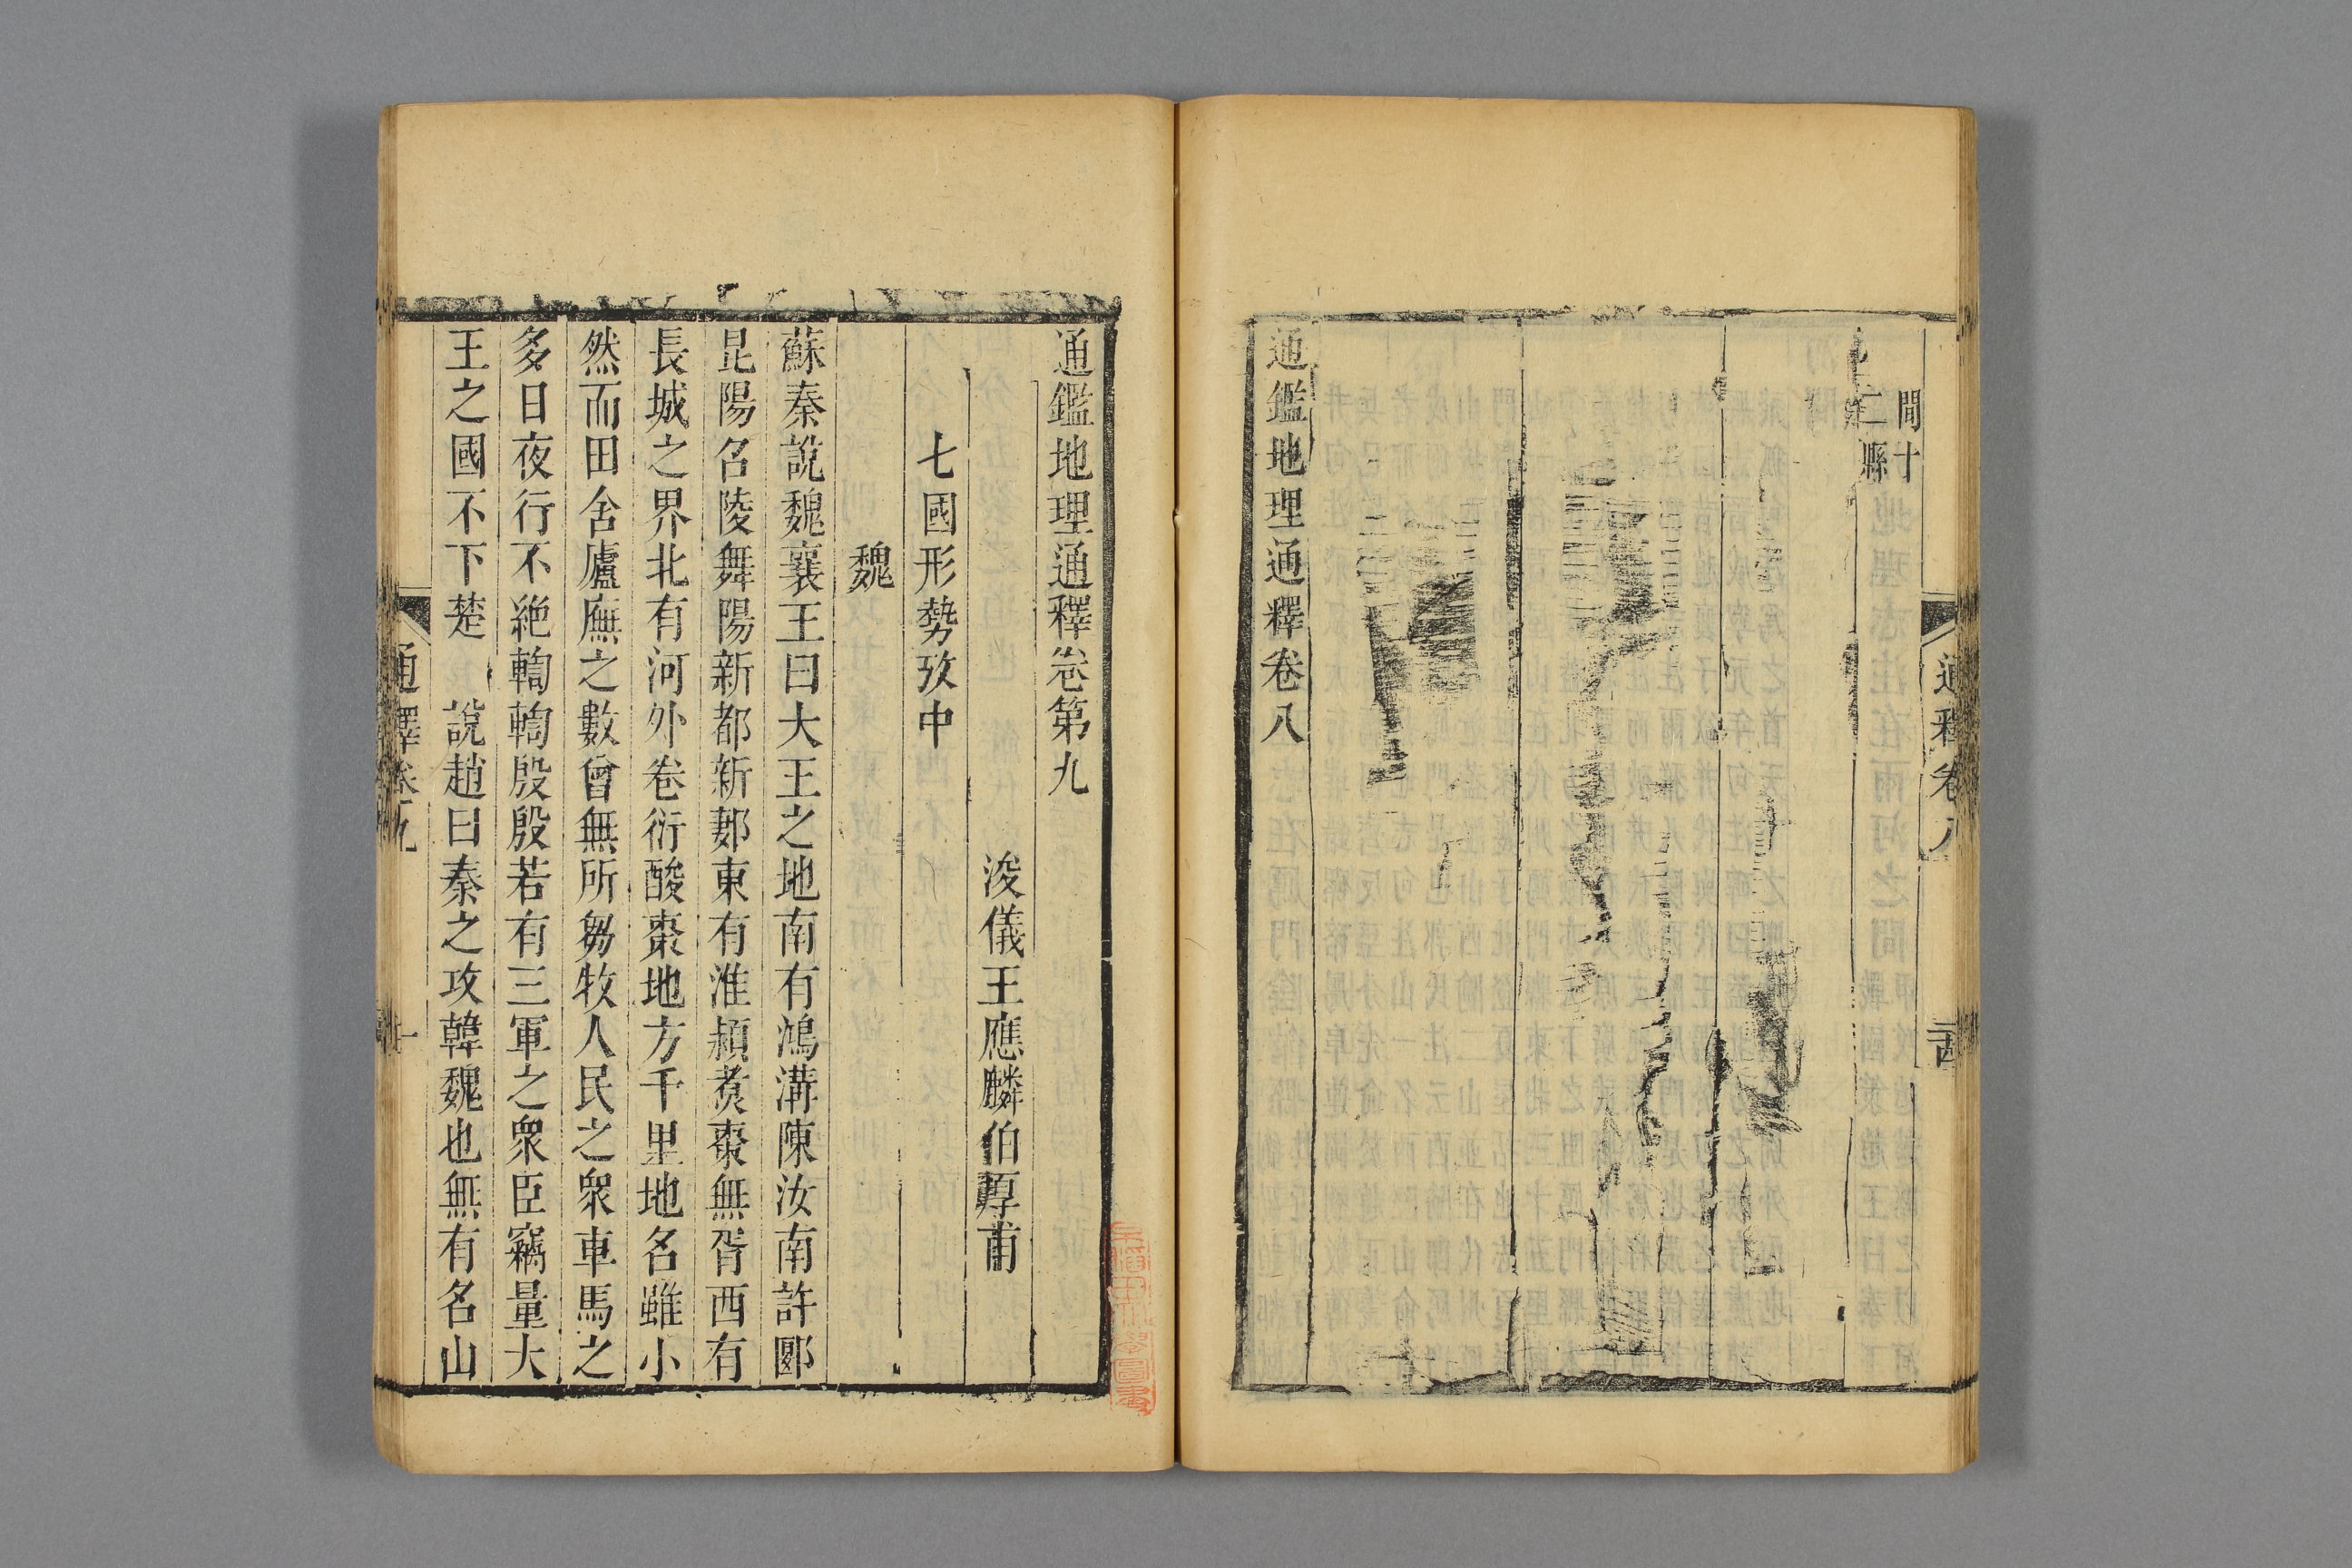 間十
二縣
通鑑地理通釋卷八
通鑑地理通釋卷第九
浚儀王應麟伯厚甫
七國形勢攷中
魏
蘇秦說魏襄王曰大王之地南有鴻溝陳汝南許郾
昆陽召陵舞陽新都新郪東有淮潁煑棗無胥西有
長城之界北有河外卷衍酸棗地方千里地名雖小
然而田舍廬廡之數曾無所芻牧人民之衆車馬之
多日夜行不絶輷輷殷殷若有三軍之衆臣竊量大
王之國不下楚 說趙曰秦之攻韓魏也無有名山
通釋卷九
一